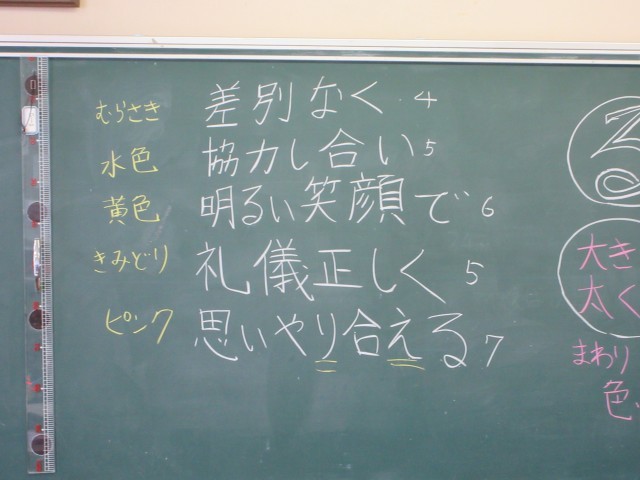 むらさき 差別なく 4
水色 協力し合い 5
黄色 明るい笑顔で 6
きみどり 礼儀正しく 5
ピンク 思いやり合える 7
る
大き
太く
まわり
色.